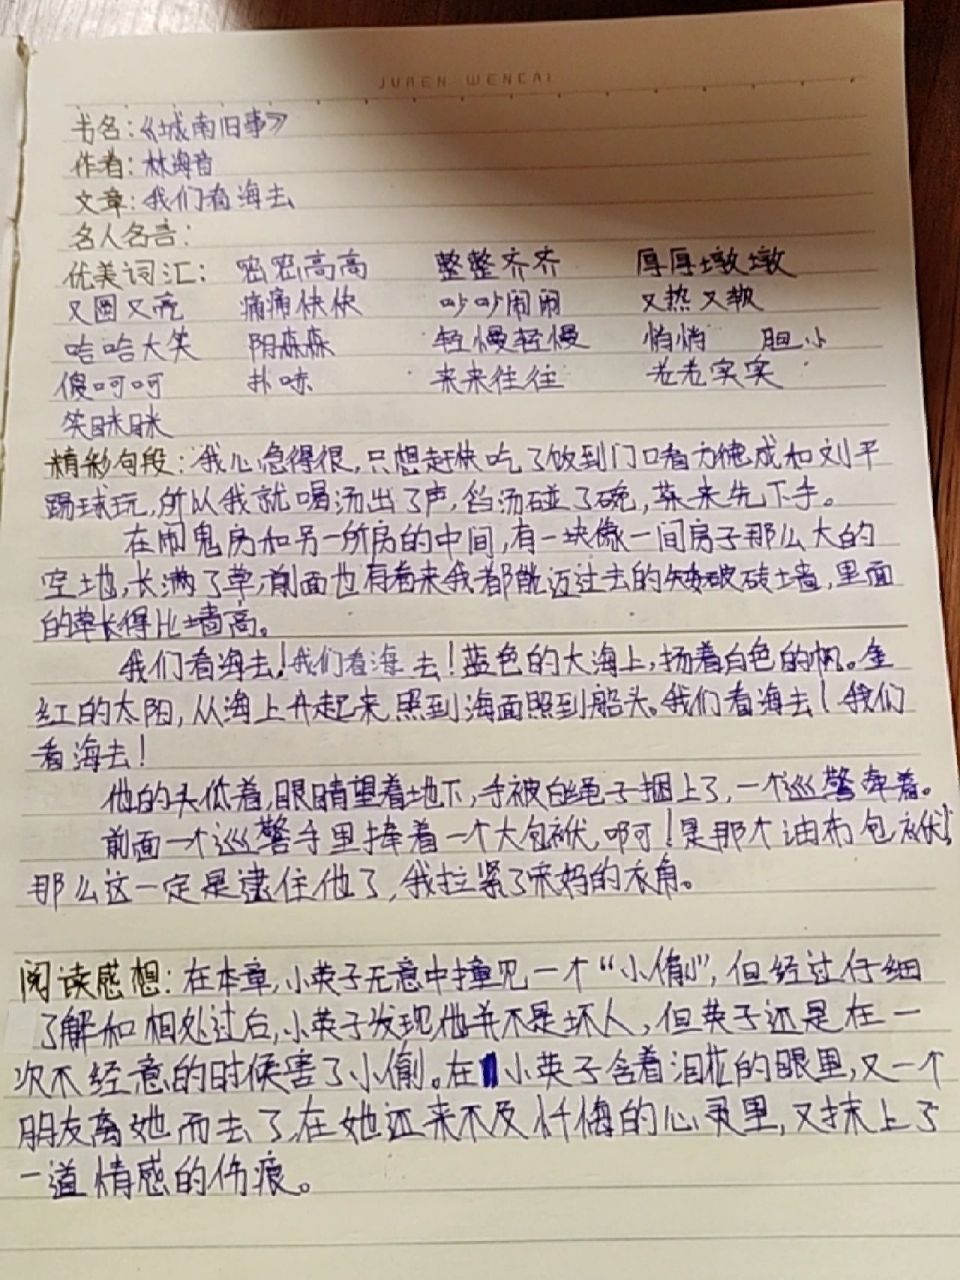 JUREN WENCAI
书名:《城南旧事》
作者:林海音
文章:我们看海去
名人名言:
优美词汇: 密密高高 整整齐齐 厚厚墩墩
又圆又亮 痛痛快快 吵吵闹闹 又热又软
哈哈大笑 阴森森 轻慢轻慢 悄悄 胆小
傻呵呵 扑哧 来来往往 老老实实
笑眯眯
精彩句段:我心急得很,只想赶快吃了饭到门口看方德成和刘平
踢球玩,所以我就喝汤出了声,匙汤碰了碗,菜来先下手。
在闹鬼房和另一所房的中间,有一块像一间房子那么大的
空地,长满了草,前面也有看来我都能迈过去的矮破砖墙,里面
的草长得比墙高。
我们看海去!我们看海去!蓝色的大海上,扬着白色的帆。金
红的太阳,从海上升起来,照到海面照到船头。我们看海去!我们
看海去!
他的头低着,眼睛望着地下,手被白绳子捆上了,一个巡警牵着。
前面一个巡警手里捧着一个大包袱,啊!是那个油布包袱!
那么这一定是逮住他了,我拉紧了宋妈的衣角。
阅读感想:在本章,小英子无意中撞见一个“小偷”,但经过仔细
了解和相处过后,小英子发现他并不是坏人,但英子还是在一
次不经意的时候害了小偷。在小英子含着泪花的眼里,又一个
朋友离她而去了,在她还来不及忏悔的心灵里,又抹上了
一道情感的伤痕。